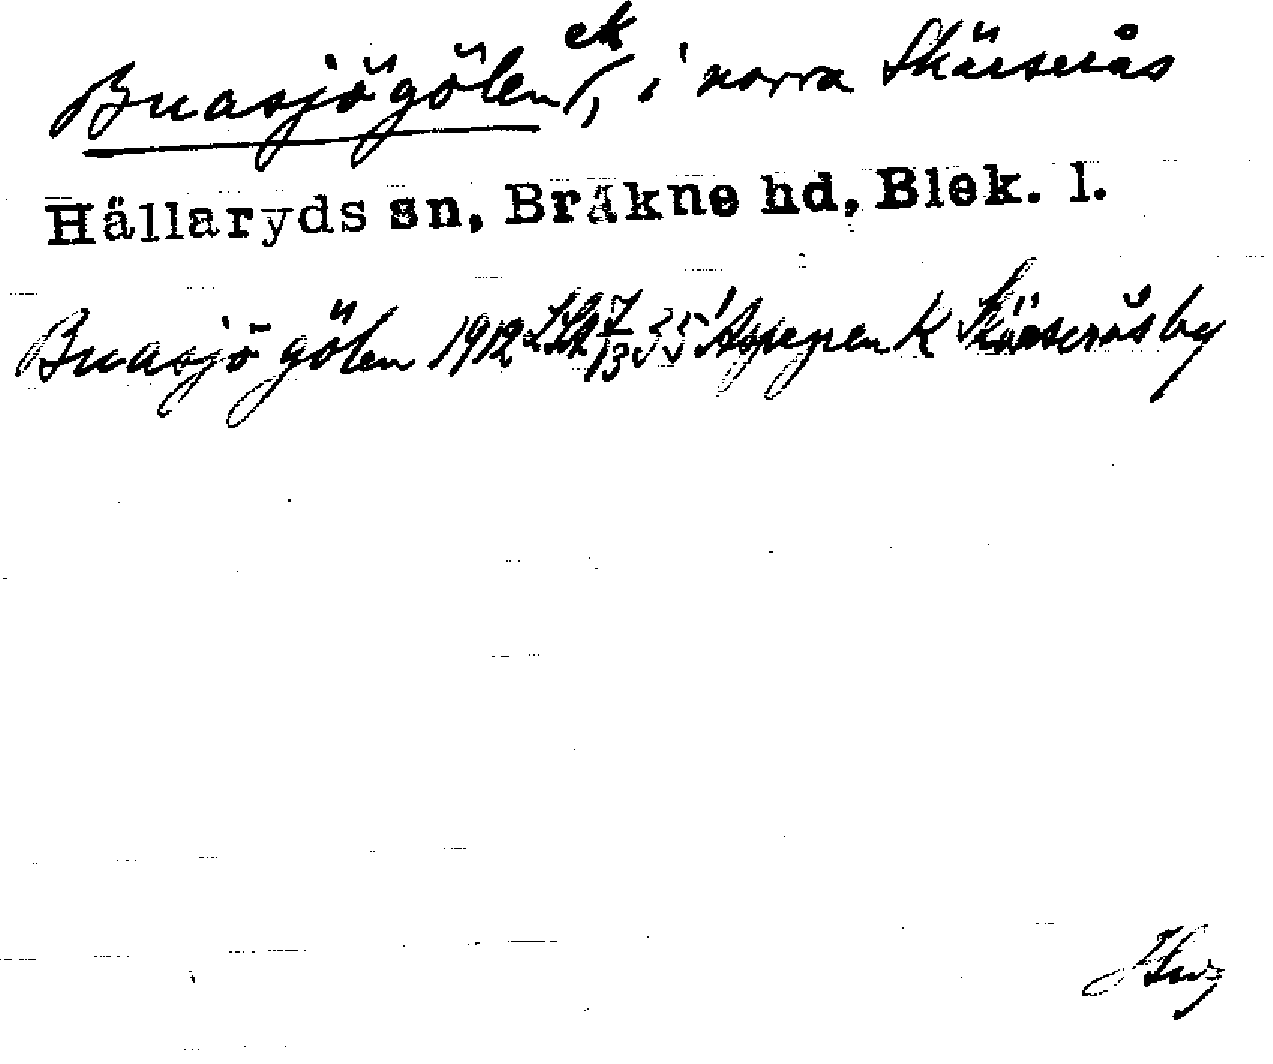 Buasjögölen, ek i norra Skärserås
Hällaryds sn, Bräkne hd, Blek. l.
Buasjögölen 1912 LSt 7/13 35 Aspepen K Skärseråsby